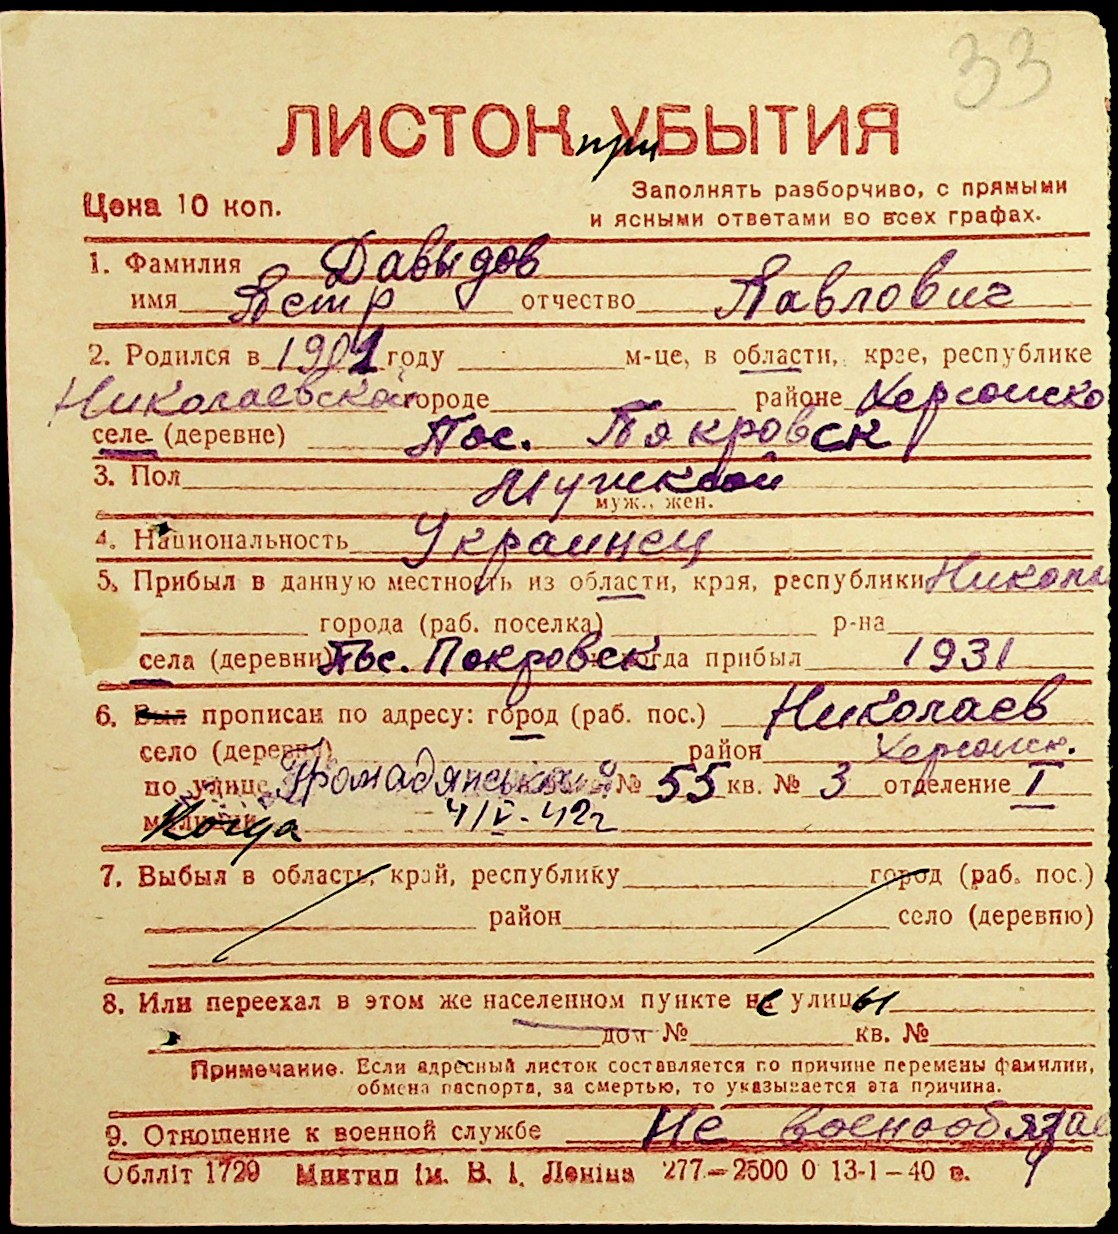 33
ЛИСТОК при УБЫТИЯ
Цена 10 коп.
Заполнять разборчиво, с прямыми
и ясными ответами во всех графах.
1. Фамилия Давыдов
имя Петр отчество Павлович
2. Родился в 1901 году м-це, в области, крае, республике
Николаевской городе районе Херсонско
селе (деревне) Пос. Покровск
3. Пол Мужской
муж., жен.
4. Национальность Украинец
5. Прибыл в данную местность из области, края, республики Никола
города (раб. поселка) р-на
села (деревни) Пос. Покровск когда прибыл 1931
6. Был прописан по адресу: город (раб. пос.) Николаев
село (деревня) район Херсонск.
по улице Громадянська я № 55 кв. № 3 отделение I
милиции Когда 4/V-42г
7. Выбыл в область, край, республику город (раб. пос.)
район село (деревню)
8. Или переехал в этом же населенном пункте с улицы
дом № кв. №
Примечание. Если адресный листок составляется по причине перемены фамилии,
обмена паспорта, за смертью, то указывается эта причина.
9. Отношение к военной службе Не военнообязан
Облліт 1729 Миктип ім. В. І. Леніна 277—2500 0 13-1—40 в.